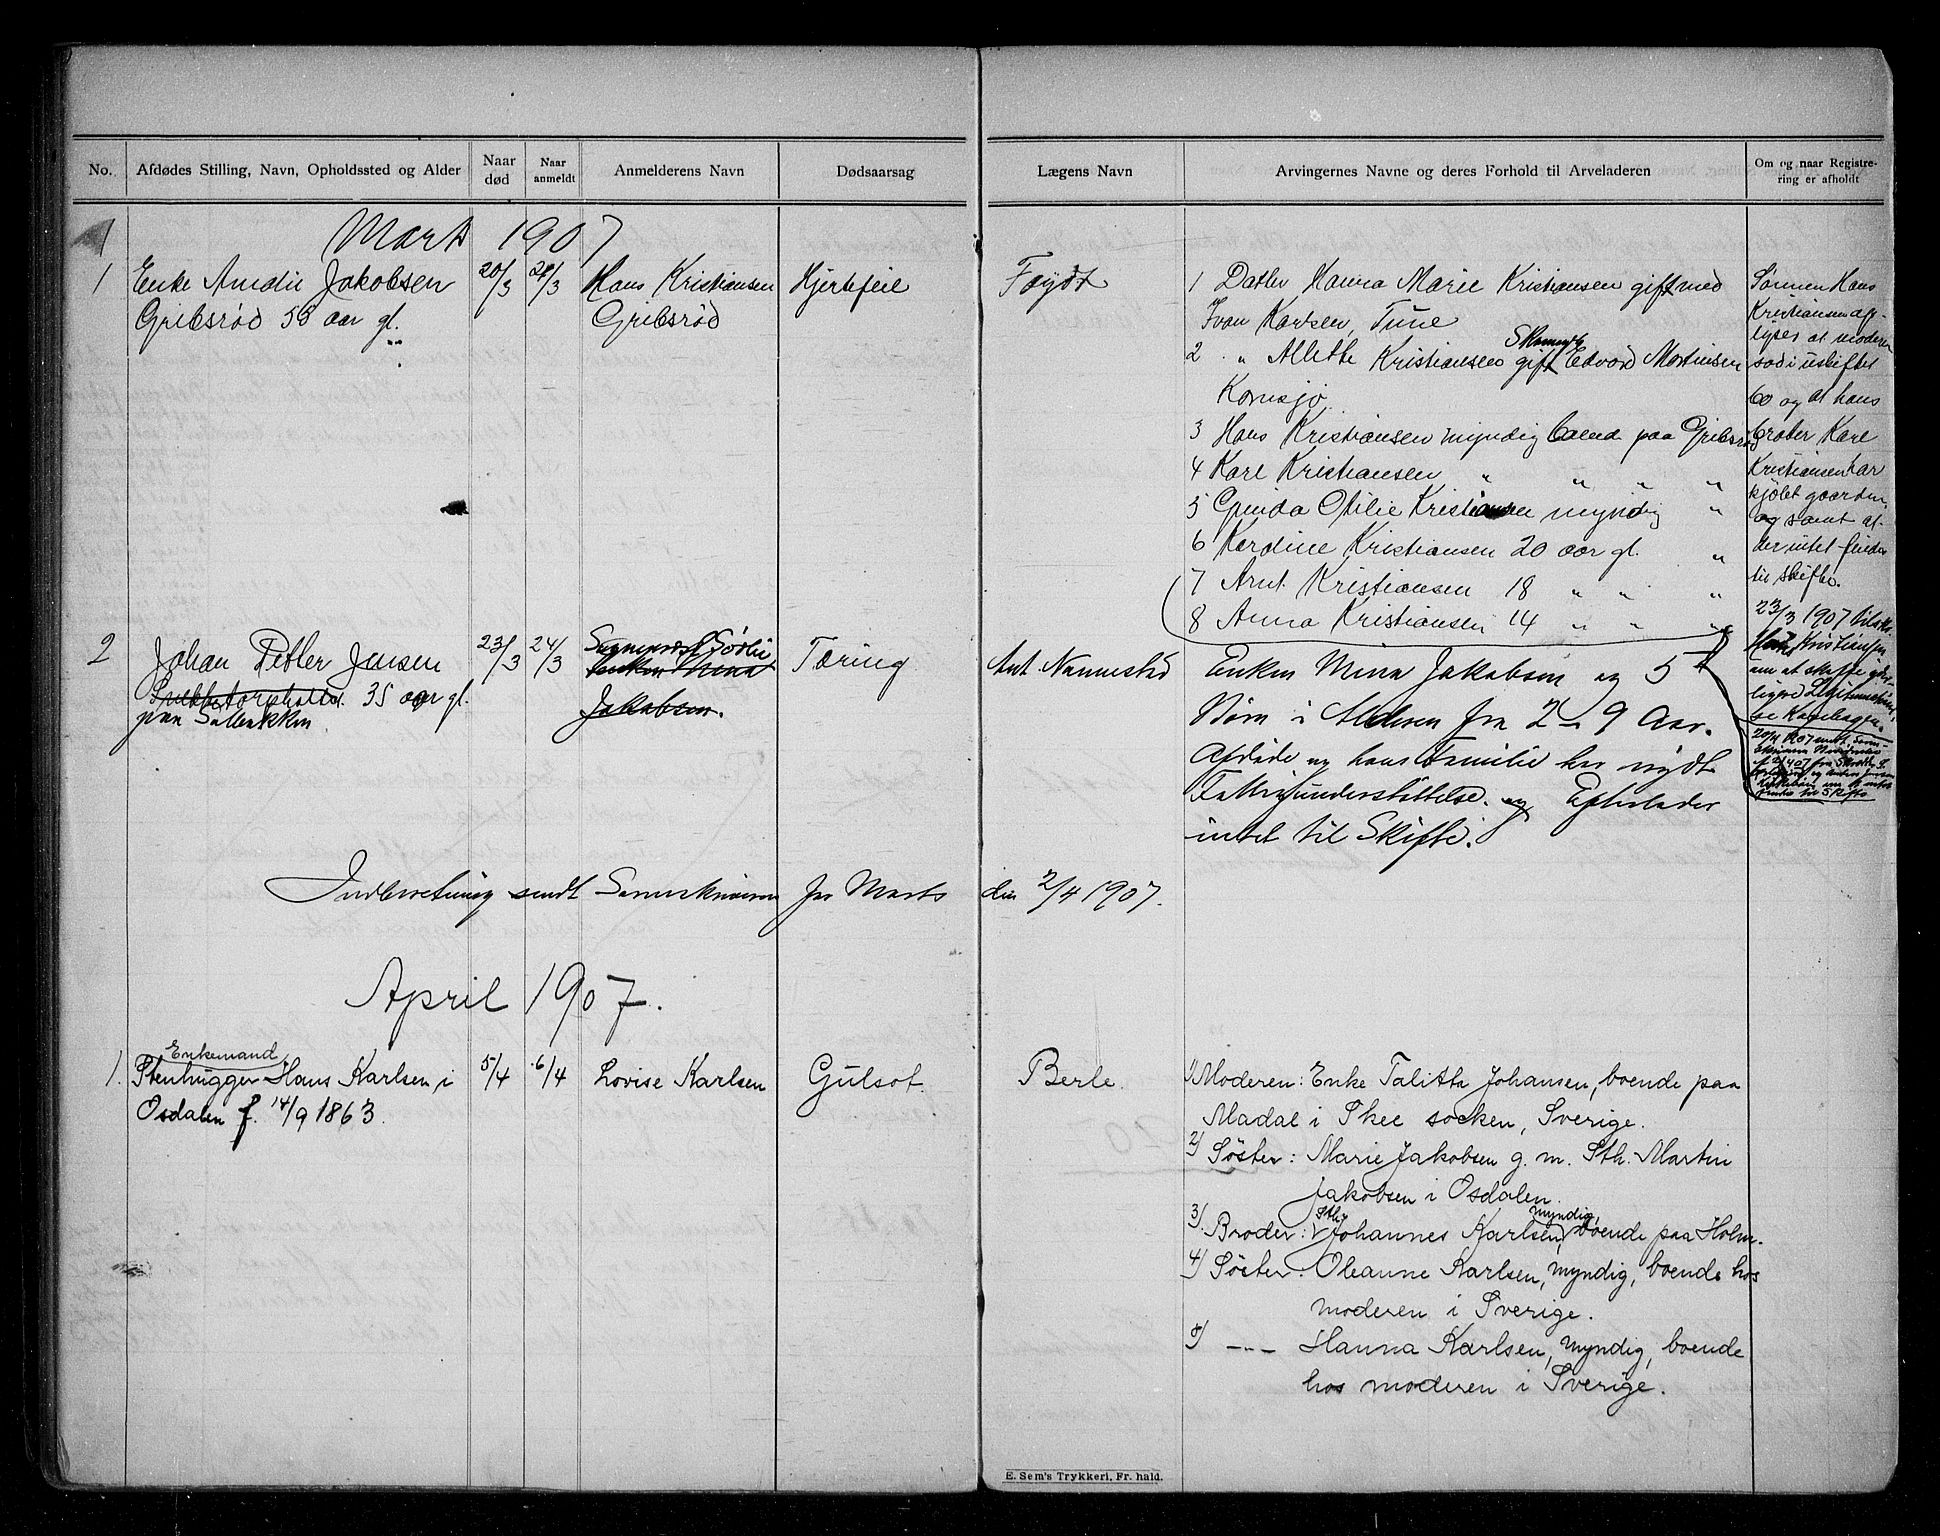 No.
Afdødes Stilling, Navn, Opholdssted og Alder
Naar død
Naar anmeldt
Anmelderens Navn
Dødsaarsag
Lægens Navn
Arvingernes Navne og deres Forhold til Arveladeren
Om og naar Registre-
ring er afholdt
Marts 1907
1
Enke Amelie Jakobsen
Gribsrød 53 aar gl.
20/3
Hans Kristiansen
Gribsrød
Hjertefeil
1 Datter Hanna Marie Kristiansen gift med
Ivar Karlsen, Tune
2 " Allette Kristiansen gift Edvard Martinsen
Kornsjø
3 Hans Kristiansen myndig boend paa Gribsrød
4 Karl Kristiansen " " " "
5 Otilie Kristiansen myndig "
6 Kardine Kristiansen 20 aar gl. "
7 Arnt Kristiansen 18 " " "
8 Anna Kristiansen 14 " " "
Sønnen Hans
Kristiansen op-
lyses at moderen
sad i uskiftet
bo og at hans
broder Karl
Kristiansen har
kjøbt gaarden
og samt at
der intet findes
til skifte.
23/3 1907
Kristiansen
om at skaffe
2
Johan Petter Jensen
35 aar gl.
paa
23/3
24/3
Jakobsen.
Tæring
Ant Nannestad
Enken Mina Jakobsen og 5
Børn i Alderen fra 2 - 9 Aar.
Afdøde og hans Familie har nydt
Fattigunderstøttelse. og Efterlader
intet til Skifte.
Indberetning sendt Sorenskriveren for Marts den 2/4 1907.
April 1907.
Enkemand
1.
Stenhugger Hans Karlsen i
Osdalen f. 14/9 1863.
5/4
6/4
Lovise Karlsen
Gulsot
Berle.
1) Moderen: Enke Talitta Johansen, boende paa
Madal i Skee socken, Sverige.
2) Søster: Marie Jakobsen g. m. Sth. Martin
Jakobsen i Osdalen.
3) Broder: Sth. Johannes Karlsen, myndig, boende paa Holm.
4) Søster: Oleanne Karlsen, myndig, boende hos
moderen i Sverige.
5) -"- Hanna Karlsen, myndig, boende
hos moderen i Sverige.
E. Sem's Trykkeri, Fr.hald.